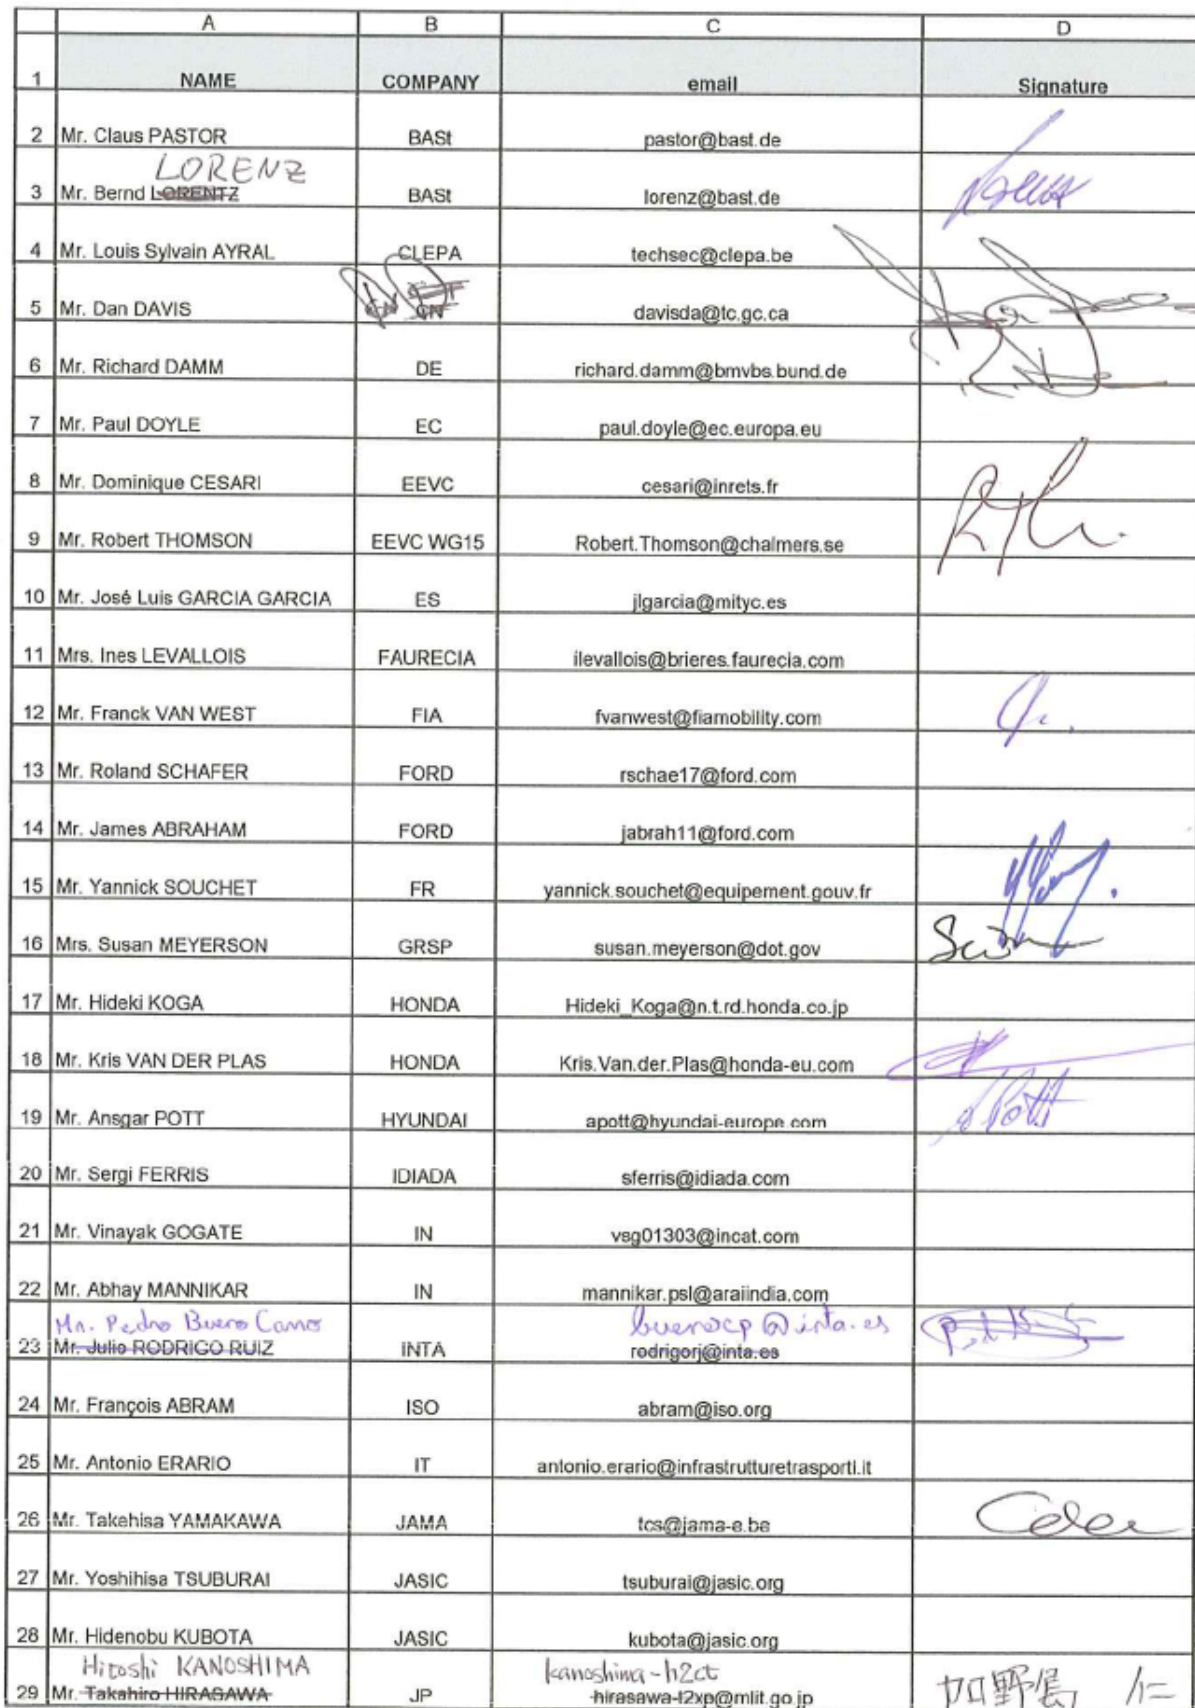 A B C D
1 NAME COMPANY email Signature
2 Mr. Claus PASTOR BASt pastor@bast.de
LORENZ
3 Mr. Bernd LORENTZ BASt lorenz@bast.de
4 Mr. Louis Sylvain AYRAL CLEPA techsec@clepa.be
5 Mr. Dan DAVIS CN davisda@tc.gc.ca
6 Mr. Richard DAMM DE richard.damm@bmvbs.bund.de
7 Mr. Paul DOYLE EC paul.doyle@ec.europa.eu
8 Mr. Dominique CESARI EEVC cesari@inrets.fr
9 Mr. Robert THOMSON EEVC WG15 Robert.Thomson@chalmers.se
10 Mr. José Luis GARCIA GARCIA ES jlgarcia@mityc.es
11 Mrs. Ines LEVALLOIS FAURECIA ilevallois@brieres.faurecia.com
12 Mr. Franck VAN WEST FIA fvanwest@fiamobility.com
13 Mr. Roland SCHAFER FORD rschae17@ford.com
14 Mr. James ABRAHAM FORD jabrah11@ford.com
15 Mr. Yannick SOUCHET FR yannick.souchet@equipement.gouv.fr
16 Mrs. Susan MEYERSON GRSP susan.meyerson@dot.gov
17 Mr. Hideki KOGA HONDA Hideki_Koga@n.t.rd.honda.co.jp
18 Mr. Kris VAN DER PLAS HONDA Kris.Van.der.Plas@honda-eu.com
19 Mr. Ansgar POTT HYUNDAI apott@hyundai-europe.com APott
20 Mr. Sergi FERRIS IDIADA sferris@idiada.com
21 Mr. Vinayak GOGATE IN vsg01303@incat.com
22 Mr. Abhay MANNIKAR IN mannikar.psl@araiindia.com
Mr. Pedro Bueno Cano buenocp@inta.es
23 Mr. Julio RODRIGO RUIZ INTA rodrigorj@inta.es
24 Mr. François ABRAM ISO abram@iso.org
25 Mr. Antonio ERARIO IT antonio.erario@infrastrutturetrasporti.it
26 Mr. Takehisa YAMAKAWA JAMA tcs@jama-e.be
27 Mr. Yoshihisa TSUBURAI JASIC tsuburai@jasic.org
28 Mr. Hidenobu KUBOTA JASIC kubota@jasic.org
Hitoshi KANOSHIMA kanoshima-h2ct
29 Mr. Takahiro HIRASAWA JP hirasawa-t2xp@mlit.go.jp 加野島 仁